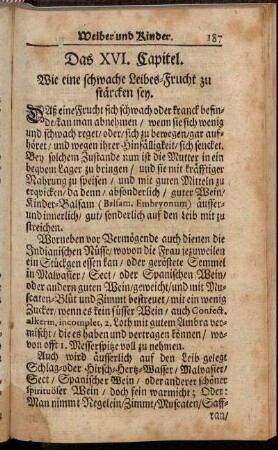 Weiber und Kinder. 187
Das XVI. Capitel.
Wie eine schwache Leibes-Frucht zu
stärcken sey.
DAß eine Frucht sich schwach oder kranck befin-
de kan man abnehmen / wenn sie sich wenig
und schwach reget / oder / sich zu bewegen / gar auf-
höret / und wegen ihrer Hinfälligkeit / sich sencket.
Bey solchem Zustande nun ist die Mutter in ein
beqvem Lager zu bringen / und sie mit kräfftiger
Nahrung zu speisen / und mit guten Mitteln zu
erqvicken / da denn / absonderlich / guter Wein /
Kinder-Balsam (Balsam. Embryonum) äusser-
und innerlich / gut / sonderlich auf den Leib mit zu
streichen.
Worneben vor Vermögende auch dienen die
Indianischen Nüsse / wovon die Frau jezuweilen
ein Stückgen essen kan / oder geröstete Semmel
in Malvasier / Sect / oder Spanischen Wein /
oder andern guten Wein / geweicht / und mit Mu-
scaten-Blüt und Zimmt bestreuet / mit ein wenig
Zucker, wenn es kein süsser Wein / auch Confect.
alkerm, incomplet, 2. Loth mit gutem Ambra ver-
mischt / die es haben und vertragen können / wo-
von offt 1. Messerspitze voll zu nehmen.
Auch wird äusserlich auf den Leib gelegt
Schlag- oder Hirsch-Hertz-Wasser / Malvasier /
Sect / Spanischer Wein / oder anderer schöner
spirituöser Wein / doch sein warmicht; Oder:
Man nimmt Negelein / Zimmt / Muscaten / Saff-
ran /